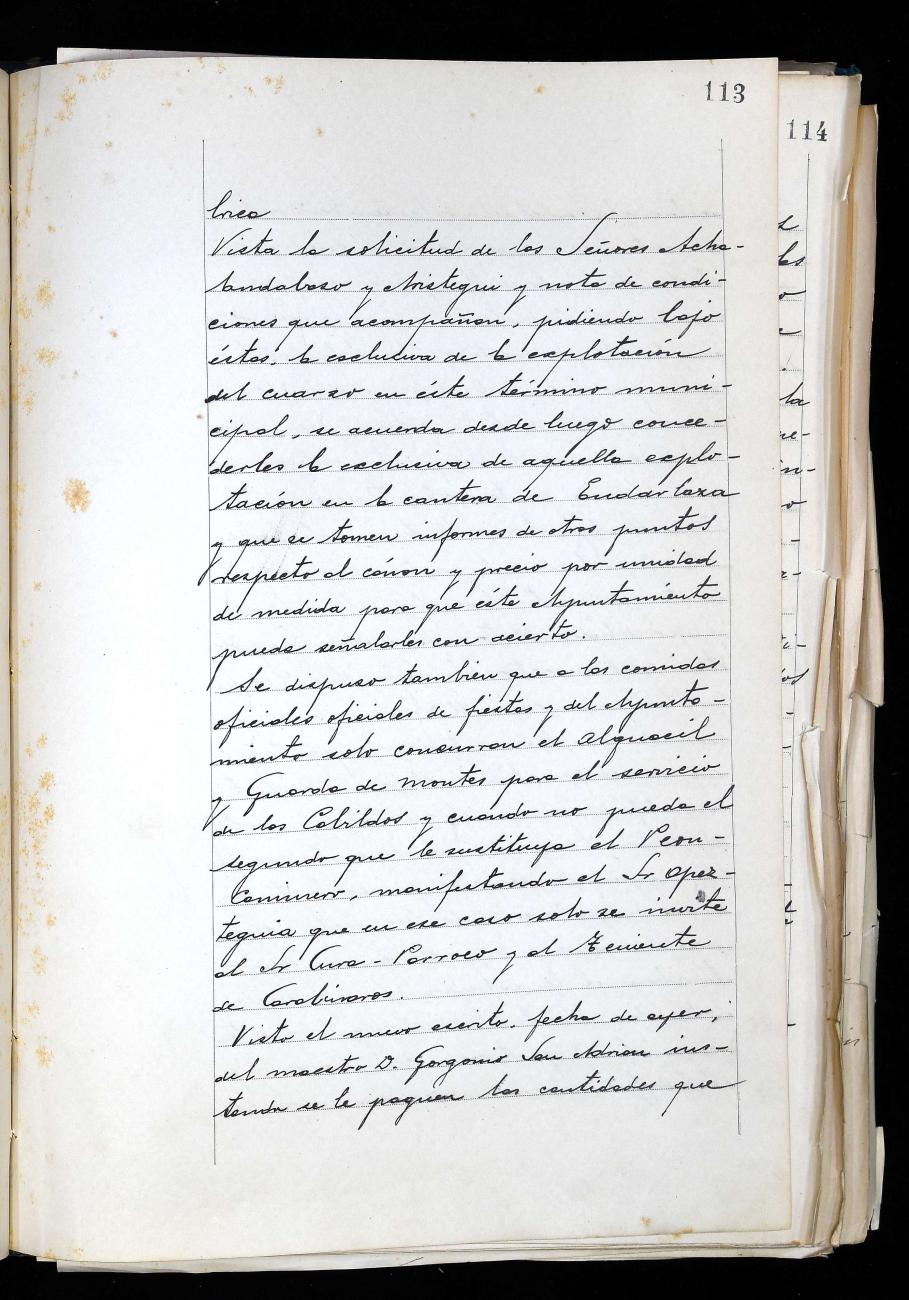 113
114
brica
Vista la solicitud de los Señores Acha-
bandabaso y Aristegui y nota de condi-
ciones que acompañan, pidiendo bajo
éstas, la esclusiva de la explotación
del cuarzo en éste término muni-
cipal, se acuerda desde luego conce-
derles la exclusiva de aquella explo-
tación en la cantera de Endarlaza
y que se tomen informes de otros puntos
respecto al cánon y precio por unidad
de medida para que éste Ayuntamiento
pueda señalarles con acierto.
Se dispuso tambien que a las comidas
oficiales oficiales de fiestas y del Ayunta-
miento solo concurran el Alguacil
y Guarda de montes para el servicio
de los Cabildos y cuando no pueda el
segundo que le sustituya el Peon-
Caminero, manifestando el Sr Apez-
teguia que en ese caso solo se invite
al Sr Cura-Parroco y al Teniente
de Carabineros.
Visto el nuevo escrito, fecha de ayer,
del maestro D. Gorgonio San Adrian ins-
tando se le paguen las cantidades que